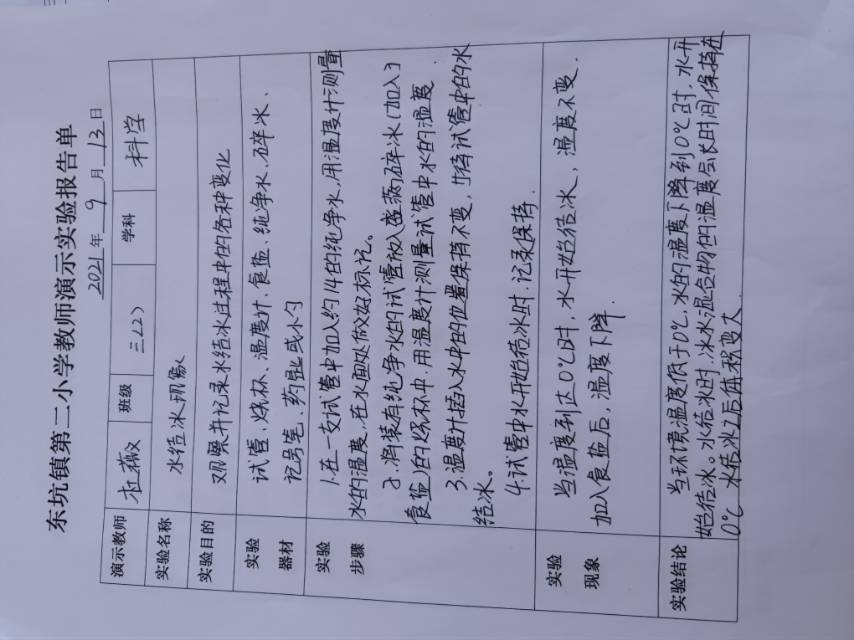 东坑镇第二小学教师演示实验报告单
2021年 9 月 13 日
演示教师 杜薇 班级 三(2) 学科 科学
实验名称 水结冰现象
实验目的 观察并记录水结冰过程中的各种变化
实验器材 试管、烧杯、温度计、食盐、纯净水、碎冰、
记号笔、药匙或小勺
实验步骤 1.在一支试管中加入约1/4的纯净水,用温度计测量
水的温度,在水面处做好标记。
2.将装有纯净水的试管放入盛满碎冰(加入了
食盐)的烧杯中,用温度计测量试管中水的温度.
3.温度计插入水中的位置保持不变,等待试管中的水
结冰。
4.试管中水开始结冰时,记录保持.
实验现象 当温度到达0℃时,水开始结冰,温度不变.
加入食盐后,温度下降.
实验结论 当环境温度低于0℃,水的温度下降到0℃时,水开
始结冰。水结冰时,冰水混合物的温度会长时间保持在
0℃ 水结冰之后体积变大.